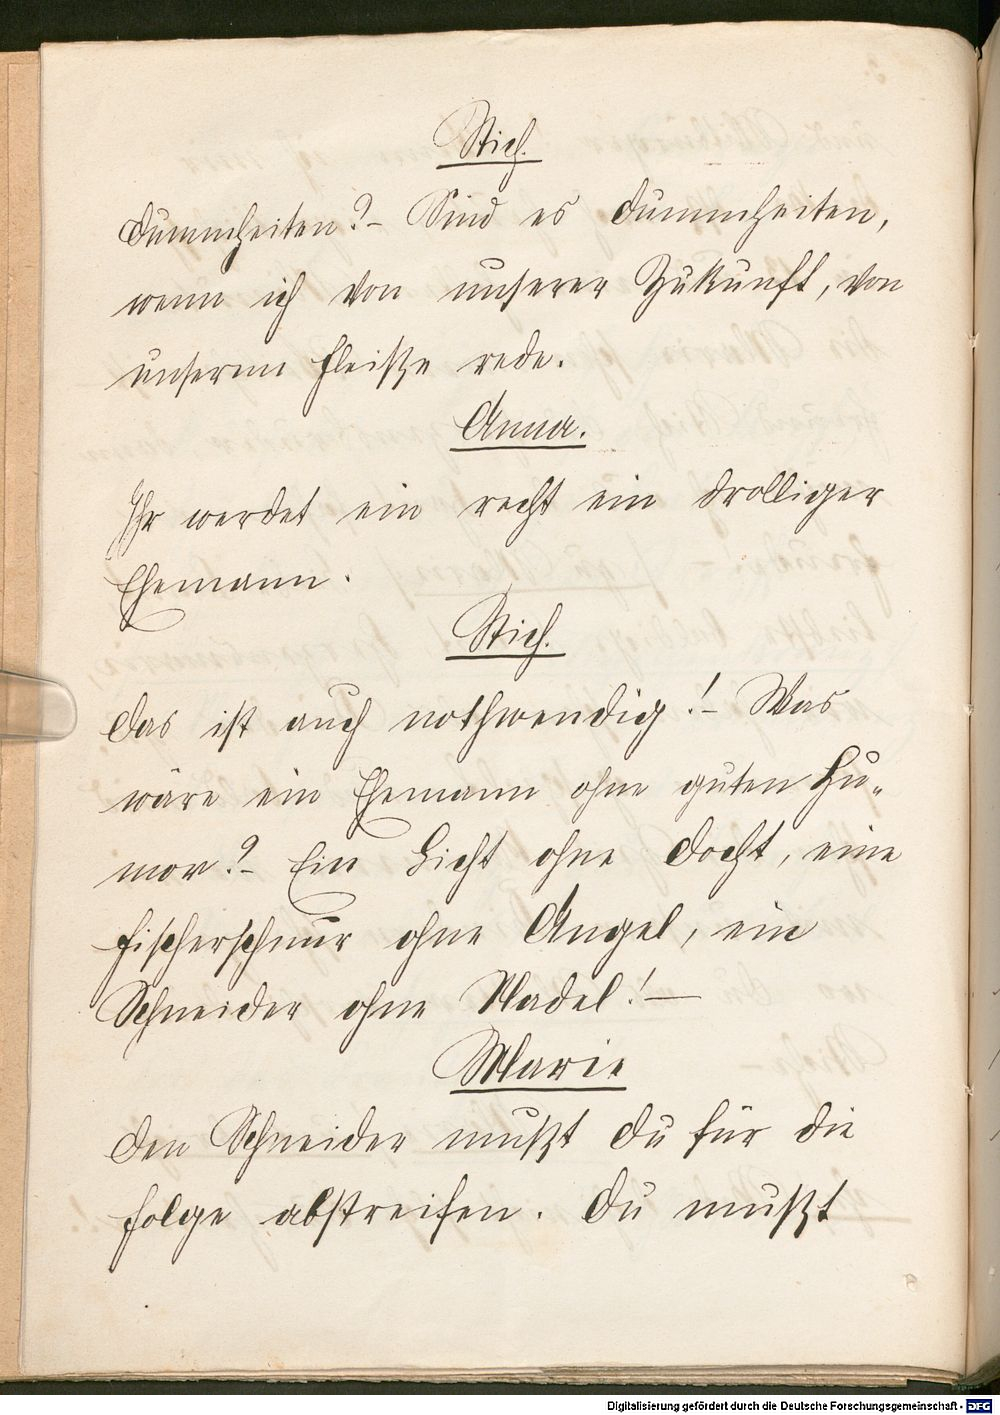 Stich.
Dummheiten? – Sind es Dummheiten,
wenn ich von unserer Zukunft, von
unserem Fleiße rede.
Anna.
Ihr werdet ein recht ein drolliger
Ehemann.
Stich.
Das ist auch nothwendig! – Was
wäre ein Ehemann ohne guten Hu-
mor? – Ein Licht ohne Docht, eine
Fischerschnur ohne Angel, ein
Schneider ohne Nadel! –
Marie
Den Schneider mußt Du für die
Folge abstreifen. Du mußt
Digitalisierung gefördert durch die Deutsche Forschungsgemeinschaft - DFG